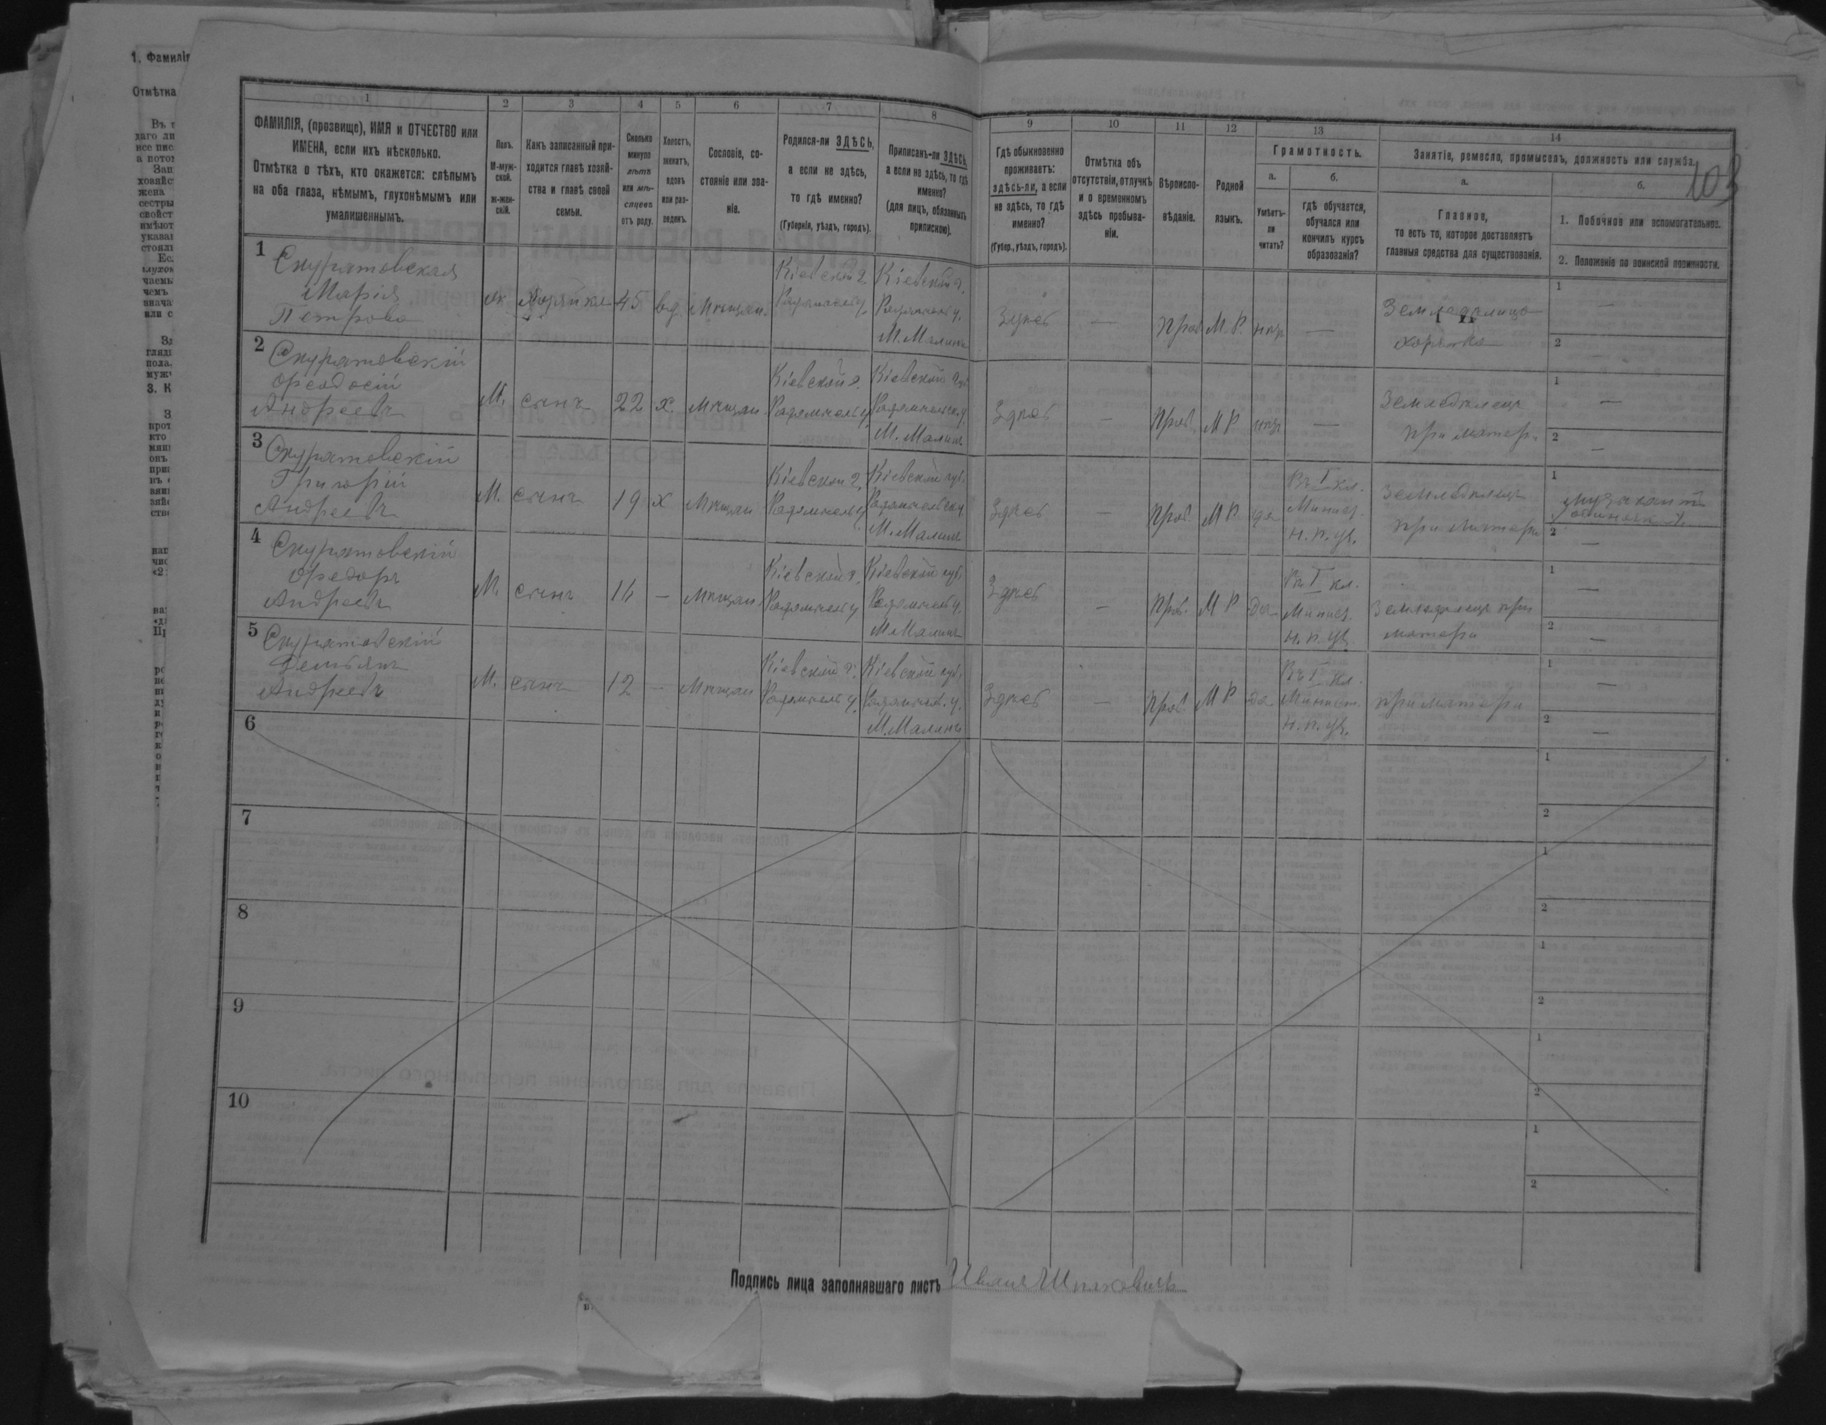 1. Фамилія
Отмѣтка
103
1 2 3 4 5 6 7 8 9 10 11 12 13 14
ФАМИЛІЯ, (прозвище), ИМЯ и ОТЧЕСТВО или
ИМЕНА, если ихъ нѣсколько.
Отмѣтка о тѣхъ, кто окажется: слѣпымъ
на оба глаза, нѣмымъ, глухонѣмымъ или
умалишеннымъ.
Полъ.
М-муж-
ской.
ж-жен-
скій.
Какъ записанный при-
ходится главѣ хозяй-
ства и главѣ своей
семьи.
Сколько
минуло
лѣтъ
или мѣ-
сяцевъ
отъ роду.
Холостъ,
женатъ,
вдовъ
или раз-
веденъ.
Сословіе, со-
стояніе или зва-
ніе.
Родился-ли ЗДѢСЬ,
а если не здѣсь,
то гдѣ именно?
(Губернія, уѣздъ, городъ).
Приписанъ-ли ЗДѢСЬ,
а если не здѣсь, то гдѣ
именно?
(для лицъ, обязанныхъ
припискою).
Гдѣ обыкновенно
проживаетъ:
здѣсь-ли, а если
не здѣсь, то гдѣ
именно?
(Губер., уѣздъ, городъ).
Отмѣтка объ
отсутствіи, отлучкѣ
и о временномъ
здѣсь пребыва-
ніи.
Вѣроиспо-
вѣданіе.
Родной
языкъ.
Грамотность.
а.
Умѣетъ-
ли
читать?
б.
гдѣ обучается,
обучался или
кончилъ курсъ
образованія?
Занятіе, ремесло, промыселъ, должность или служба.
а.
Главное,
то есть то, которое доставляетъ
главныя средства для существованія.
б.
1. Побочное или вспомогательное.
2. Положеніе по воинской повинности.
1
Скуратовская
Марія
Петрова
ж. Хозяйка 45 вд. Мѣщан.
Кіевской г.
Радомысль у.
Кіевской г.
Радомысль у.
М. Малинъ
Здѣсь — прав. М. Р. нѣт —
Земледѣлица
хозяйка
1 —
2 —
2
Скуратовскій
Ѳеодосій
Андреевъ
М. сынъ 22 х. Мѣщан.
Кіевской г.
Радомысль у.
Кіевской губ.
Радомысльск. у.
М. Малинъ
Здѣсь — прав. М Р нѣт —
Земледѣлецъ
при матери
1 —
2 —
3
Скуратовскій
Григорій
Андреевъ
М. сынъ 19 х Мѣщан
Кіевской г.
Радомысль у.
Кіевской губ.
Радомысльск. у.
М. Малинъ
Здѣсь — прав. М Р да
Въ I кл.
Минист.
н. п. уч.
Земледѣлецъ
при матери
1
2 —
4
Скуратовскій
Ѳедоръ
Андреевъ
М. сынъ 16 — Мѣщан
Кіевской г.
Радомысль у.
Кіевской губ.
Радомысль у.
М. Малинъ
Здѣсь — прав. М Р да
Въ I кл.
Минист.
н. п. уч.
Земледѣлецъ при
матери
1 —
2 —
5
Скуратовскій
Демьянъ
Андреевъ
М. сынъ 12 — Мѣщан
Кіевской г.
Радомысль у.
Кіевской губ.
Радомысл. у.
М. Малинъ
Здѣсь — прав. М Р да
Въ I кл.
Минист.
н. п. уч.
при матери
1 —
2 —
6
1
2
7
1
2
8
1
2
9
1
2
10
1
2
Подпись лица заполнявшаго листъ Иванъ